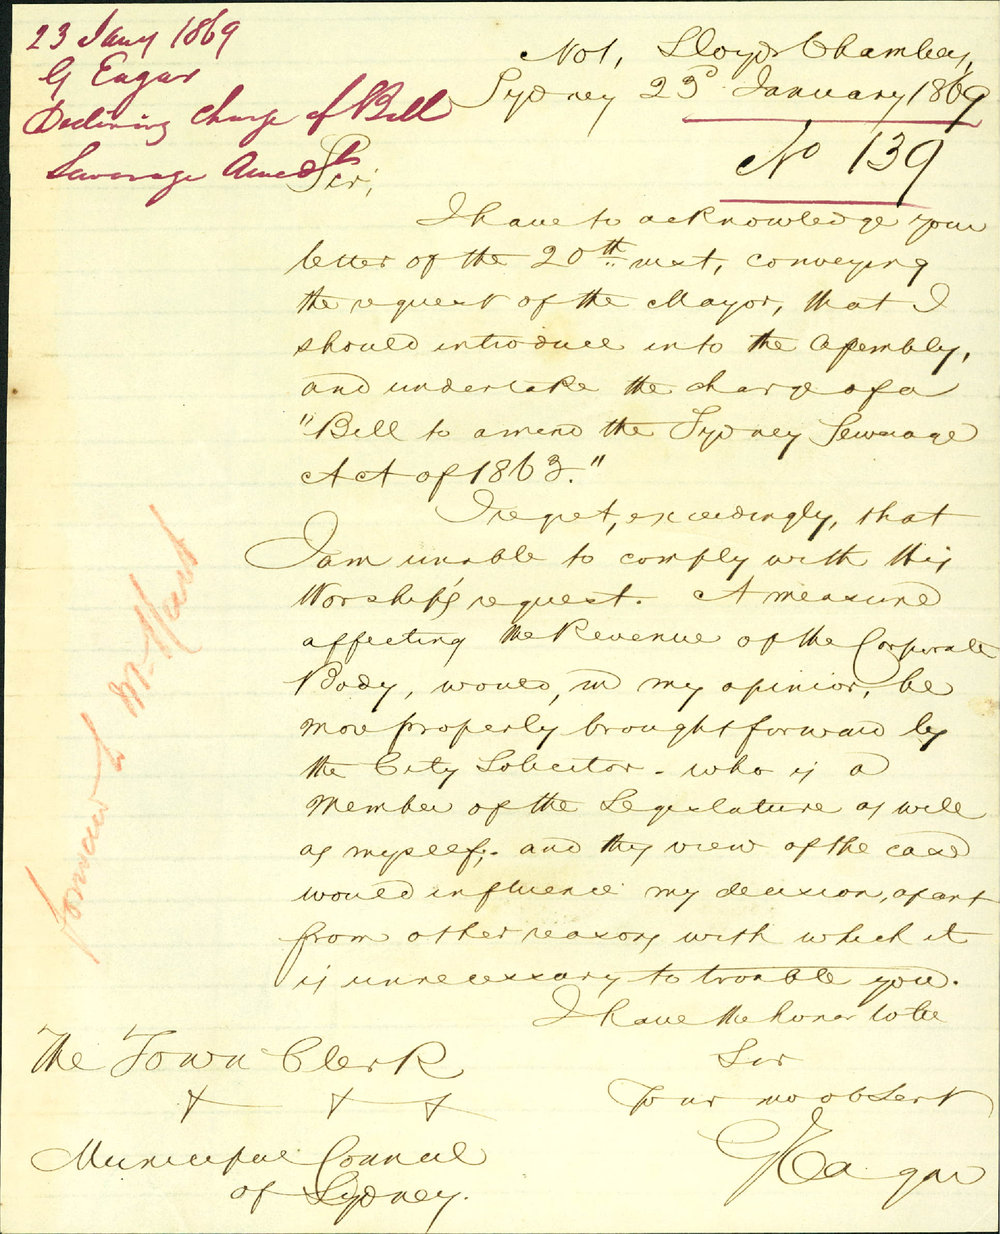 23 Jany 1869
G Eagar
Declining charge of Bill
Sewerage Amedts
No 1, Lloyds Chambers,
Sydney 23d January 1869
No 139
Sir,
I have to acknowledge your
letter of the 20th inst, conveying
the request of the Mayor, that I
should introduce into the Assembly,
and undertake the charge of a
"Bill to amend the Sydney Sewerage
Act of 1863."
I regret, exceedingly, that
I am unable to comply with His
Worship's request. A measure
affecting the Revenue of the Corporate
Body, would, in my opinion, be
more properly brought forward by
the City Solicitor - who is a
Member of the Legislature as well
as myself; - and this view of the case
would influence my decision, apart
from other reasons with which it
is unnecessary to trouble you.
I have the honor to be
Sir
Your mo obt Sert
G Eagar
The Town Clerk
Municipal Council
of Sydney.
forward to Mr